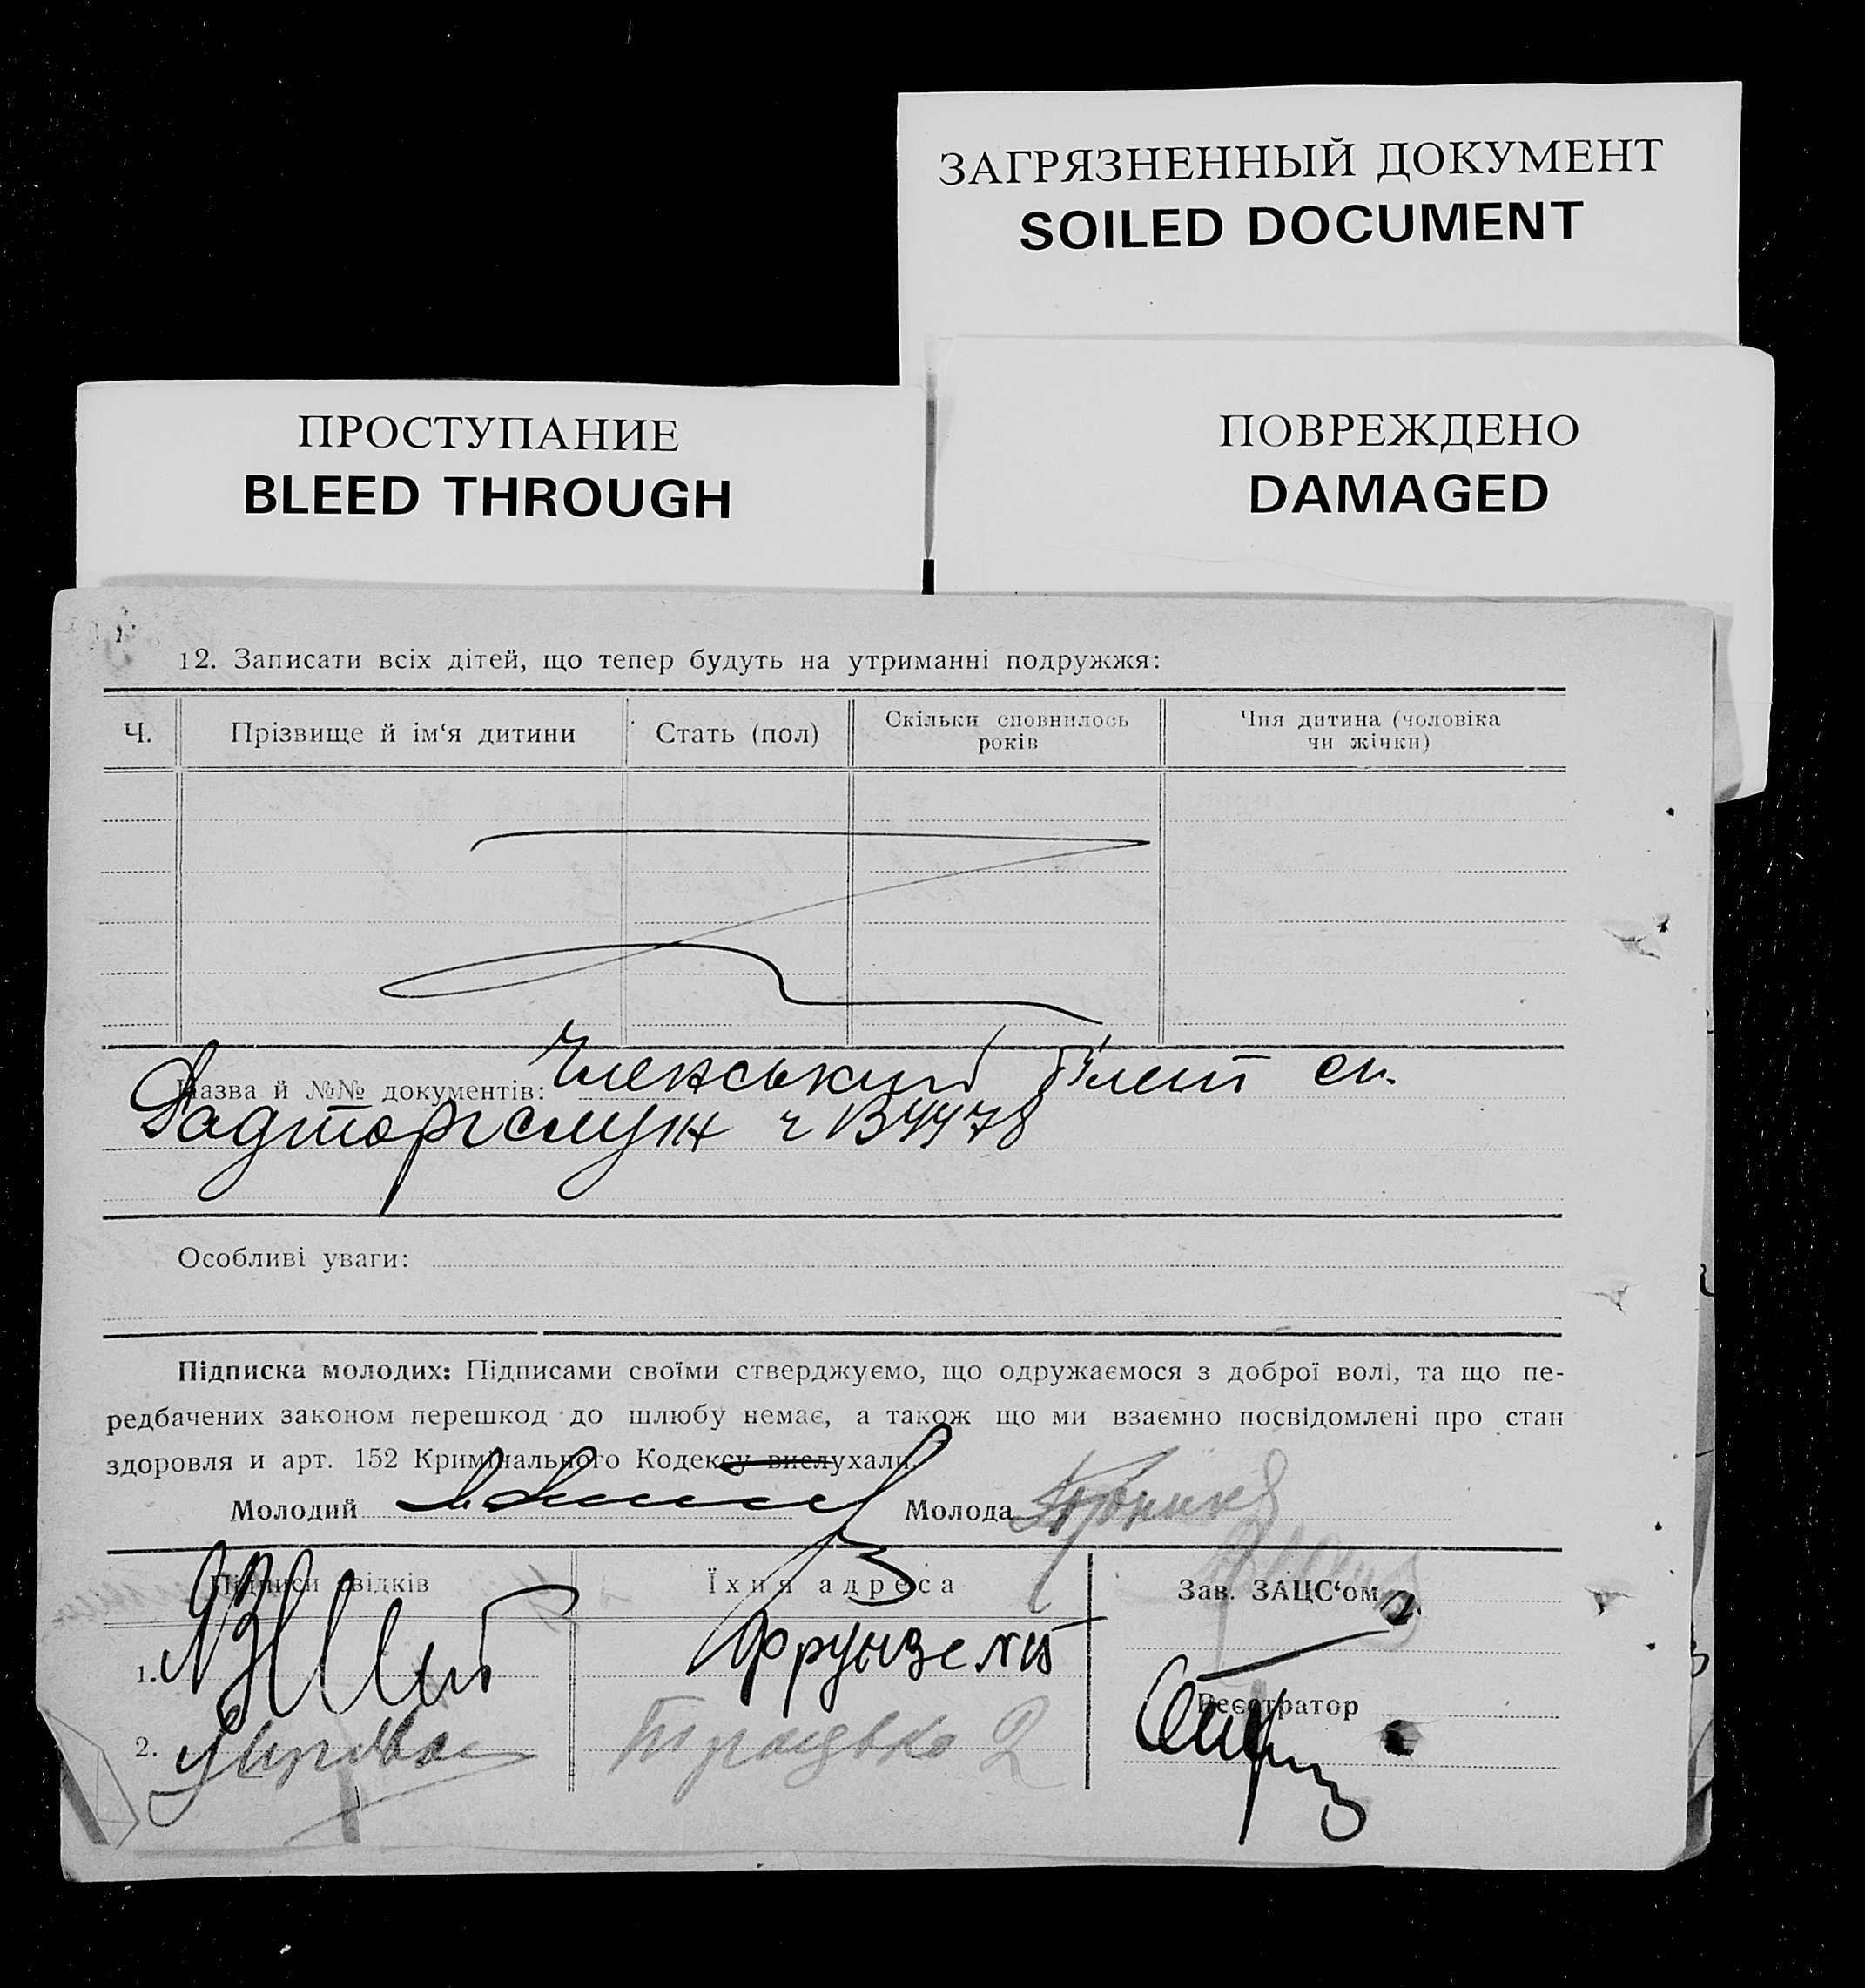 ЗАГРЯЗНЕННЫЙ ДОКУМЕНТ
SOILED DOCUMENT
ПРОСТУПАНИЕ
BLEED THROUGH
ПОВРЕЖДЕНО
DAMAGED
12. Записати всіх дітей, що тепер будуть на утриманні подружжя:
Ч. Прізвище й ім‘я дитини Стать (пол) Скільки сповнилось років Чия дитина (чоловіка чи жінки)
Назва й №№ документів: Членський білет сп.
Радторгслуж ч
Особливі уваги:
Підписка молодих: Підписами своїми стверджуємо, що одружаємося з доброї волі, та що пе-
редбачених законом перешкод до шлюбу немає, а також що ми взаємно посвідомлені про стан
здоровля и арт. 152 Кримінального Кодексу вислухали.
Молодий Молода
Підписи свідків Їхня адреса Зав. ЗАЦС‘ом
1. Фрунзе
Реєстратор
2.